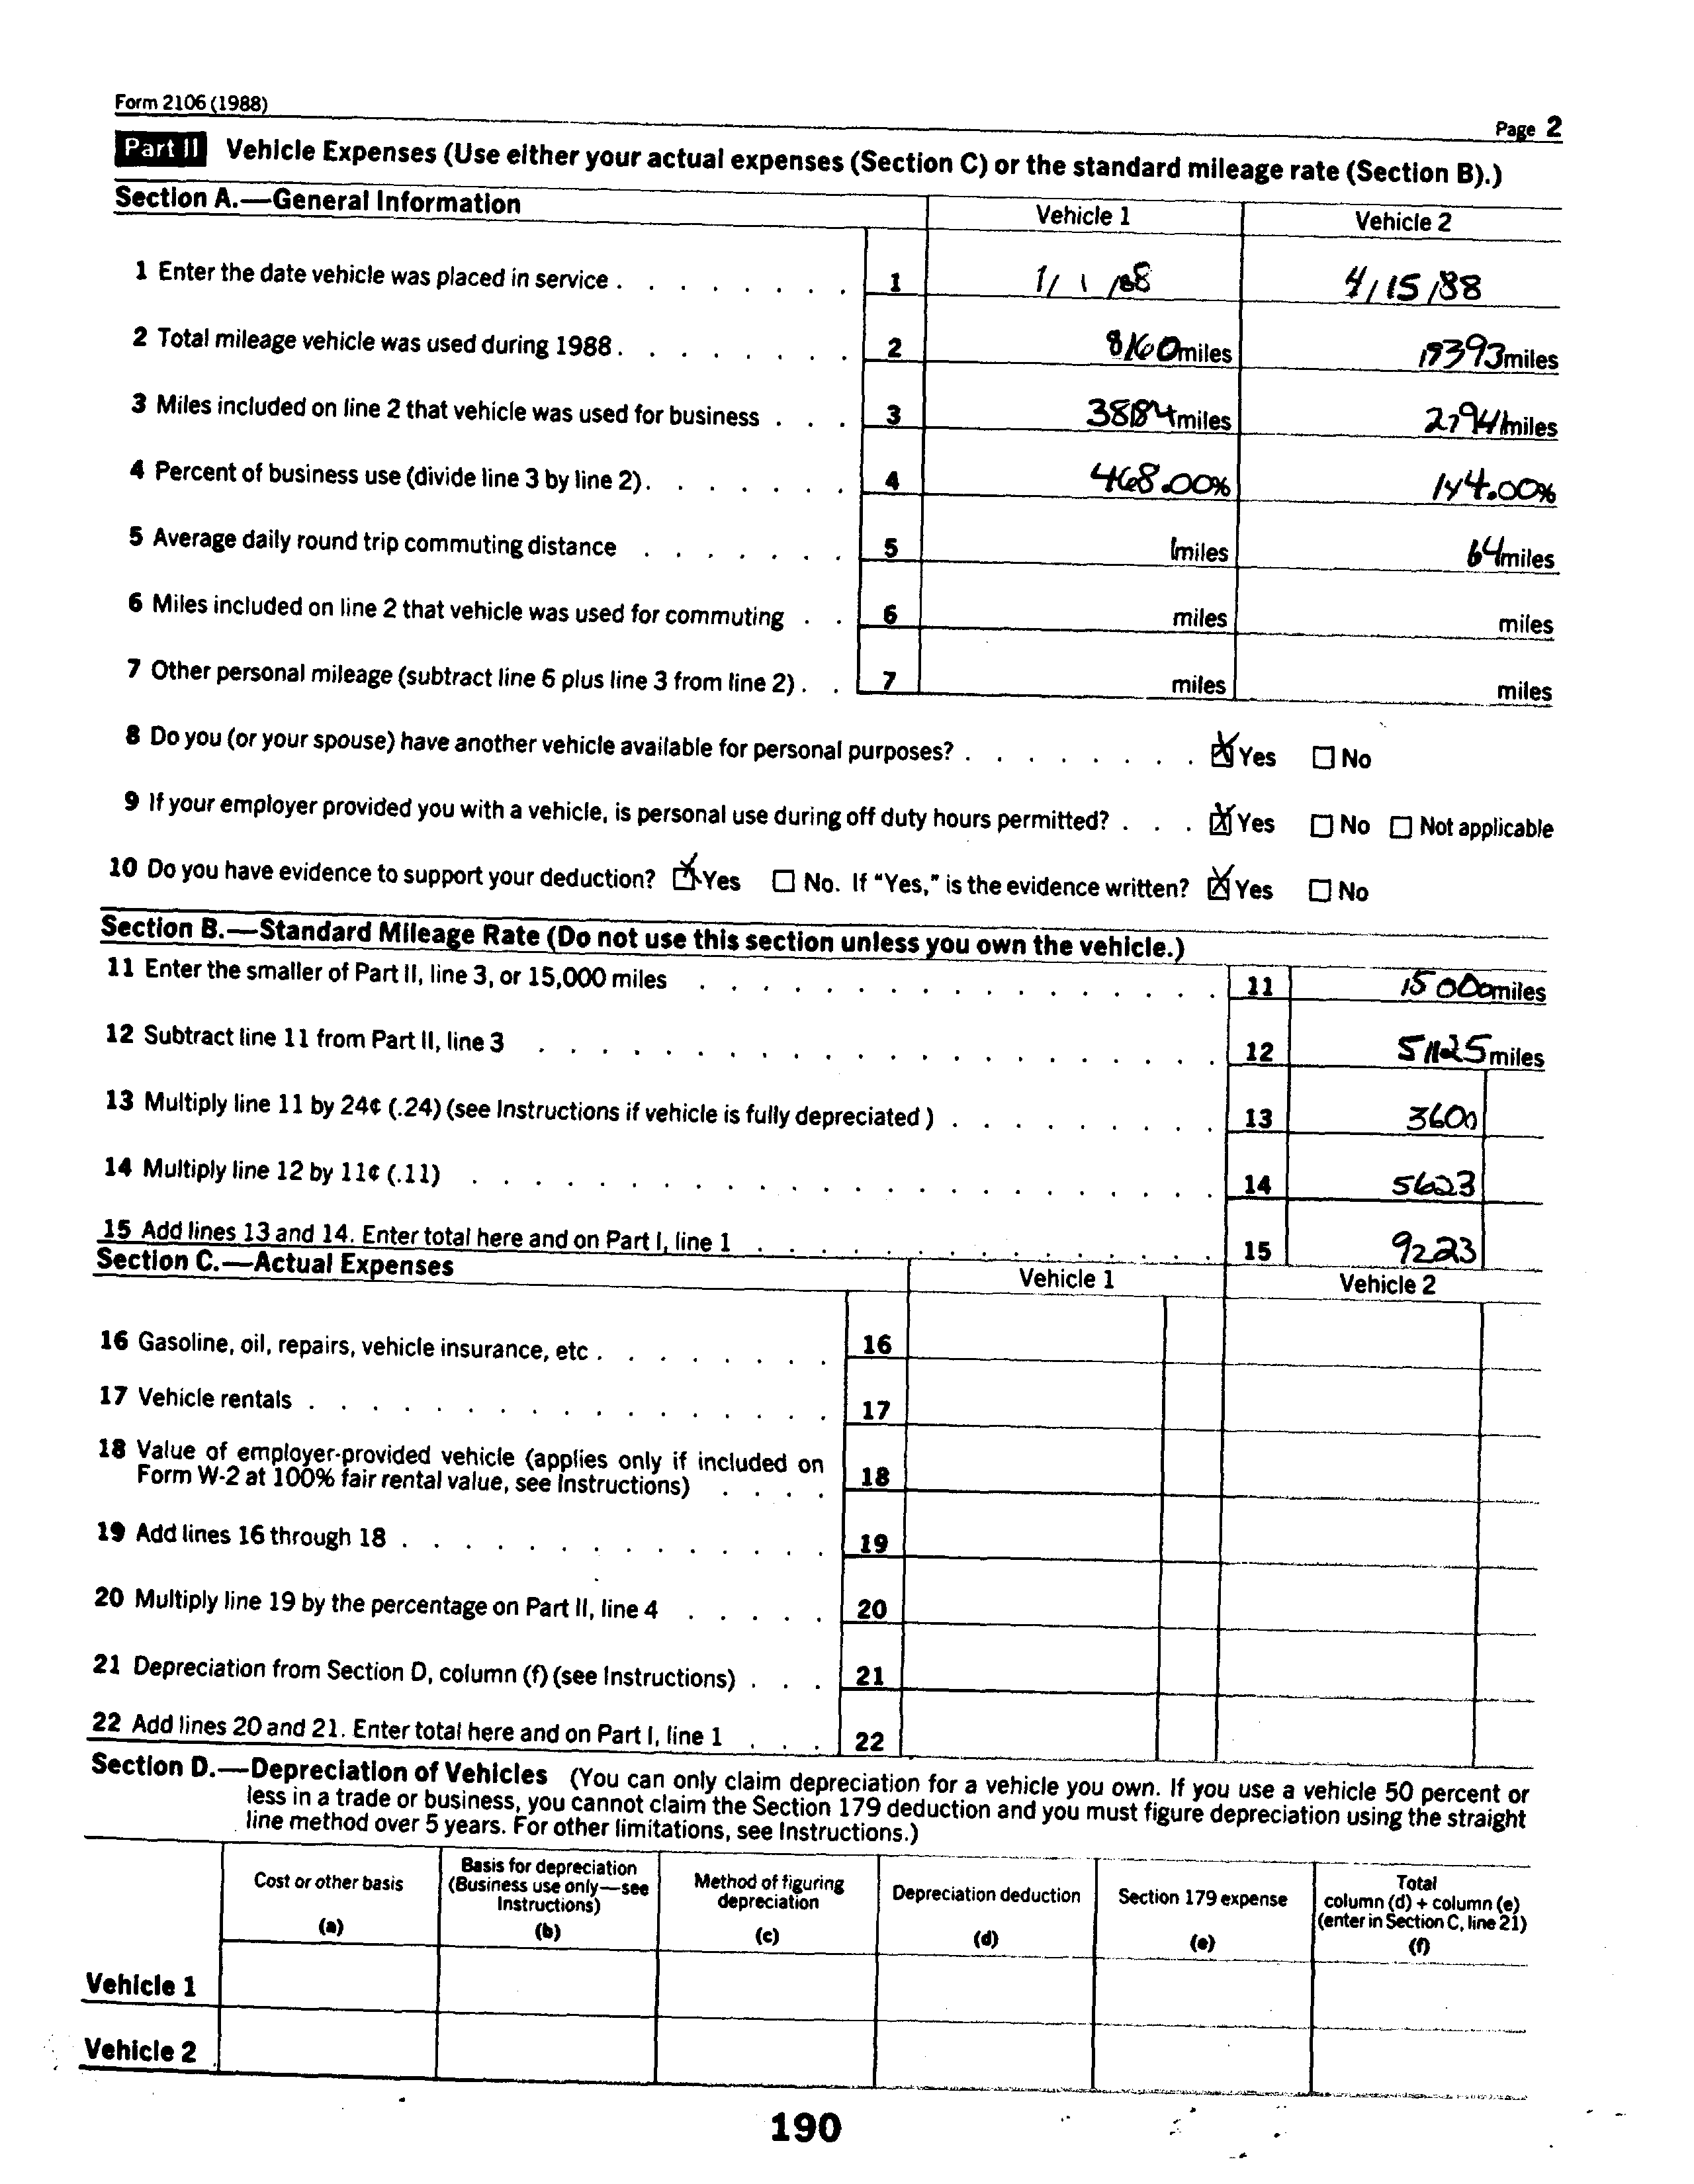 Form 2106 (1988)
Page 2
Part II Vehicle Expenses (Use either your actual expenses (Section C) or the standard mileage rate (Section B).)
Section A.—General Information
Vehicle 1 Vehicle 2
1 Enter the date vehicle was placed in service . . . . . . . . 1 1/ 1 /88 4/15/88
2 Total mileage vehicle was used during 1988 . . . . . . . . 2 8160 miles 19393 miles
3 Miles included on line 2 that vehicle was used for business . . . 3 3884 miles 2794 miles
4 Percent of business use (divide line 3 by line 2) . . . . . . . 4 468.00% 144.00%
5 Average daily round trip commuting distance . . . . . . . 5 1 miles 64 miles
6 Miles included on line 2 that vehicle was used for commuting . . 6 miles miles
7 Other personal mileage (subtract line 6 plus line 3 from line 2) . . 7 miles miles
8 Do you (or your spouse) have another vehicle available for personal purposes? . . . . . . . . ☒ Yes ☐ No
9 If your employer provided you with a vehicle, is personal use during off duty hours permitted? . . . ☒ Yes ☐ No ☐ Not applicable
10 Do you have evidence to support your deduction? ☒ Yes ☐ No. If "Yes," is the evidence written? ☒ Yes ☐ No
Section B.—Standard Mileage Rate (Do not use this section unless you own the vehicle.)
11 Enter the smaller of Part II, line 3, or 15,000 miles . . . . . . . . . . . . . . . . . 11 15000 miles
12 Subtract line 11 from Part II, line 3 . . . . . . . . . . . . . . . . . . . . . . 12 miles
13 Multiply line 11 by 24¢ (.24) (see Instructions if vehicle is fully depreciated ) . . . . . . . . . 13 3600
14 Multiply line 12 by 11¢ (.11) . . . . . . . . . . . . . . . . . . . . . . . . 14 5623
15 Add lines 13 and 14. Enter total here and on Part I, line 1 . . . . . . . . . . . . . . . 15 9223
Section C.—Actual Expenses
Vehicle 1 Vehicle 2
16 Gasoline, oil, repairs, vehicle insurance, etc . . . . . . . . 16
17 Vehicle rentals . . . . . . . . . . . . . . . . . 17
18 Value of employer-provided vehicle (applies only if included on
Form W-2 at 100% fair rental value, see Instructions) . . . . 18
19 Add lines 16 through 18 . . . . . . . . . . . . . . 19
20 Multiply line 19 by the percentage on Part II, line 4 . . . . . 20
21 Depreciation from Section D, column (f) (see Instructions) . . . 21
22 Add lines 20 and 21. Enter total here and on Part I, line 1 . . . 22
Section D.—Depreciation of Vehicles (You can only claim depreciation for a vehicle you own. If you use a vehicle 50 percent or
less in a trade or business, you cannot claim the Section 179 deduction and you must figure depreciation using the straight
line method over 5 years. For other limitations, see Instructions.)
Cost or other basis
(a)
Basis for depreciation
(Business use only—see
Instructions)
(b)
Method of figuring
depreciation
(c)
Depreciation deduction
(d)
Section 179 expense
(e)
Total
column (d) + column (e)
(enter in Section C, line 21)
(f)
Vehicle 1
Vehicle 2
190